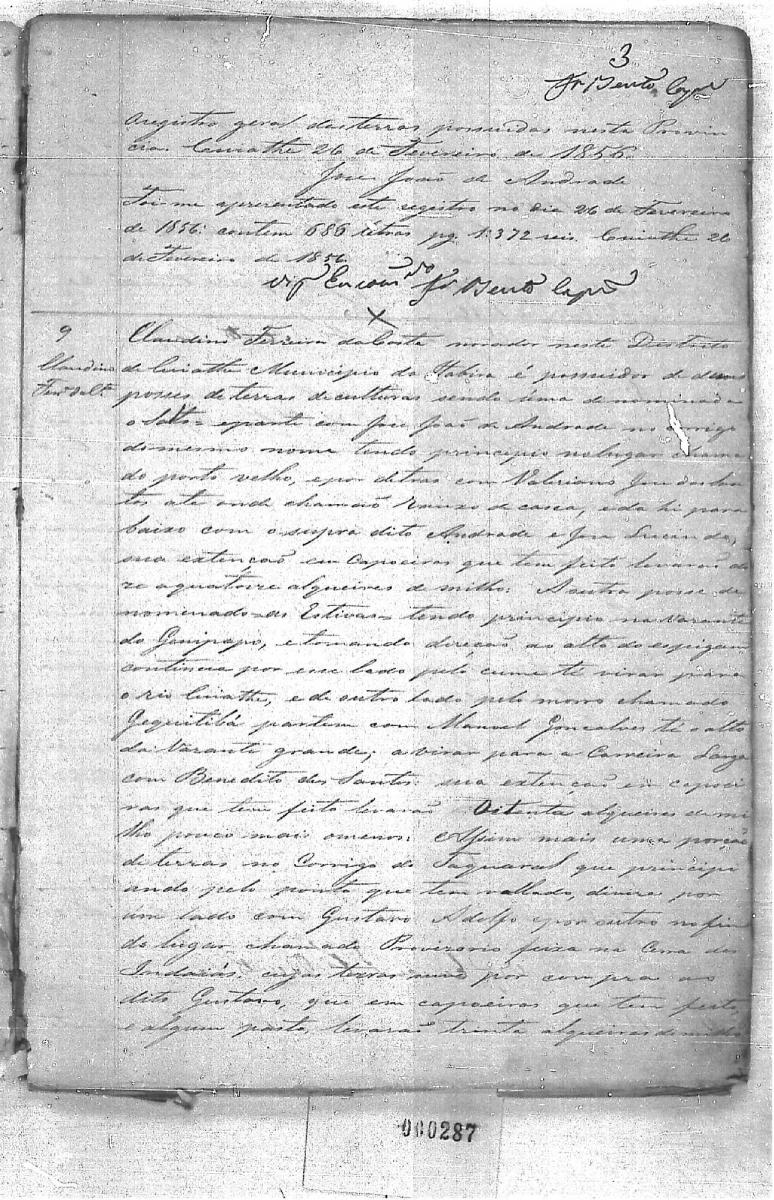 3
Fr Bento, Capm
Oregistro geral das terras possuidas nesta Provin
cia. Cuiathe 26 de Fevereiro de 1856.
Jose João de Andrade
Foi me apresentado este registro no dia 26 de Fevereiro
de 1856: contem 686 letras pg. 1:372 reis. Cuiathe 26
de Fevereiro de 1856
Fr Bento Capm
9
Claudino
Ferra da Cta
Claudino Ferreira da Costa morador neste Destricto
de Cuiathe Municipio da Itabira é possuidor de duas
posses de terras de culturas sendo uma denominada
o Salto= eparte com Jose João de Andrade no corrigo
domesmo nome tendo principio nolugar chama
do porto velho, epor detras com Valeriano Jose dos San
tos ate onde chamão de casca, eda hi para
baixo com o supra dito Andrade e Jose
sua extenção em capoeiras que tem feito levarão do
ze aquatorze alqueires de milho: A outra posse de
nomenado=as Estivas= tendo principio na Varante
do Genipapo, e tomando direção ao alto do espigam
continua por esse lado pelo cume té virar para
o rio Cuiathe, e de outro lado pelo morro chamado
Gequitibá partem com Manoel Gonçalves té o alto
da Varante grande; a virar para a Carreira Larga
com Benedito dos Santos: sua extenção em capoei
ras que tem feito levarão Oitenta alqueires de mi
lho pouco mais omenos: Assim mais uma porção
de terras no Corrigo do Taquaral que principi
ando pelo ponto que tem vallado, divire por
um lado com Gustavo Adolfo epor outro no fim
do lugar chamado Provezorio
Indaiás: cujas terras por compra ao
dito Gustavo, que em capoeiras que tem feito,
e algum pasto, levarão trinta alqueires de milho
000287